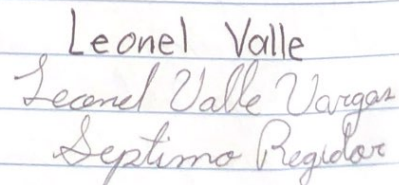 Leonel Valle
Leonel Valle Vargas
Septimo Regidor